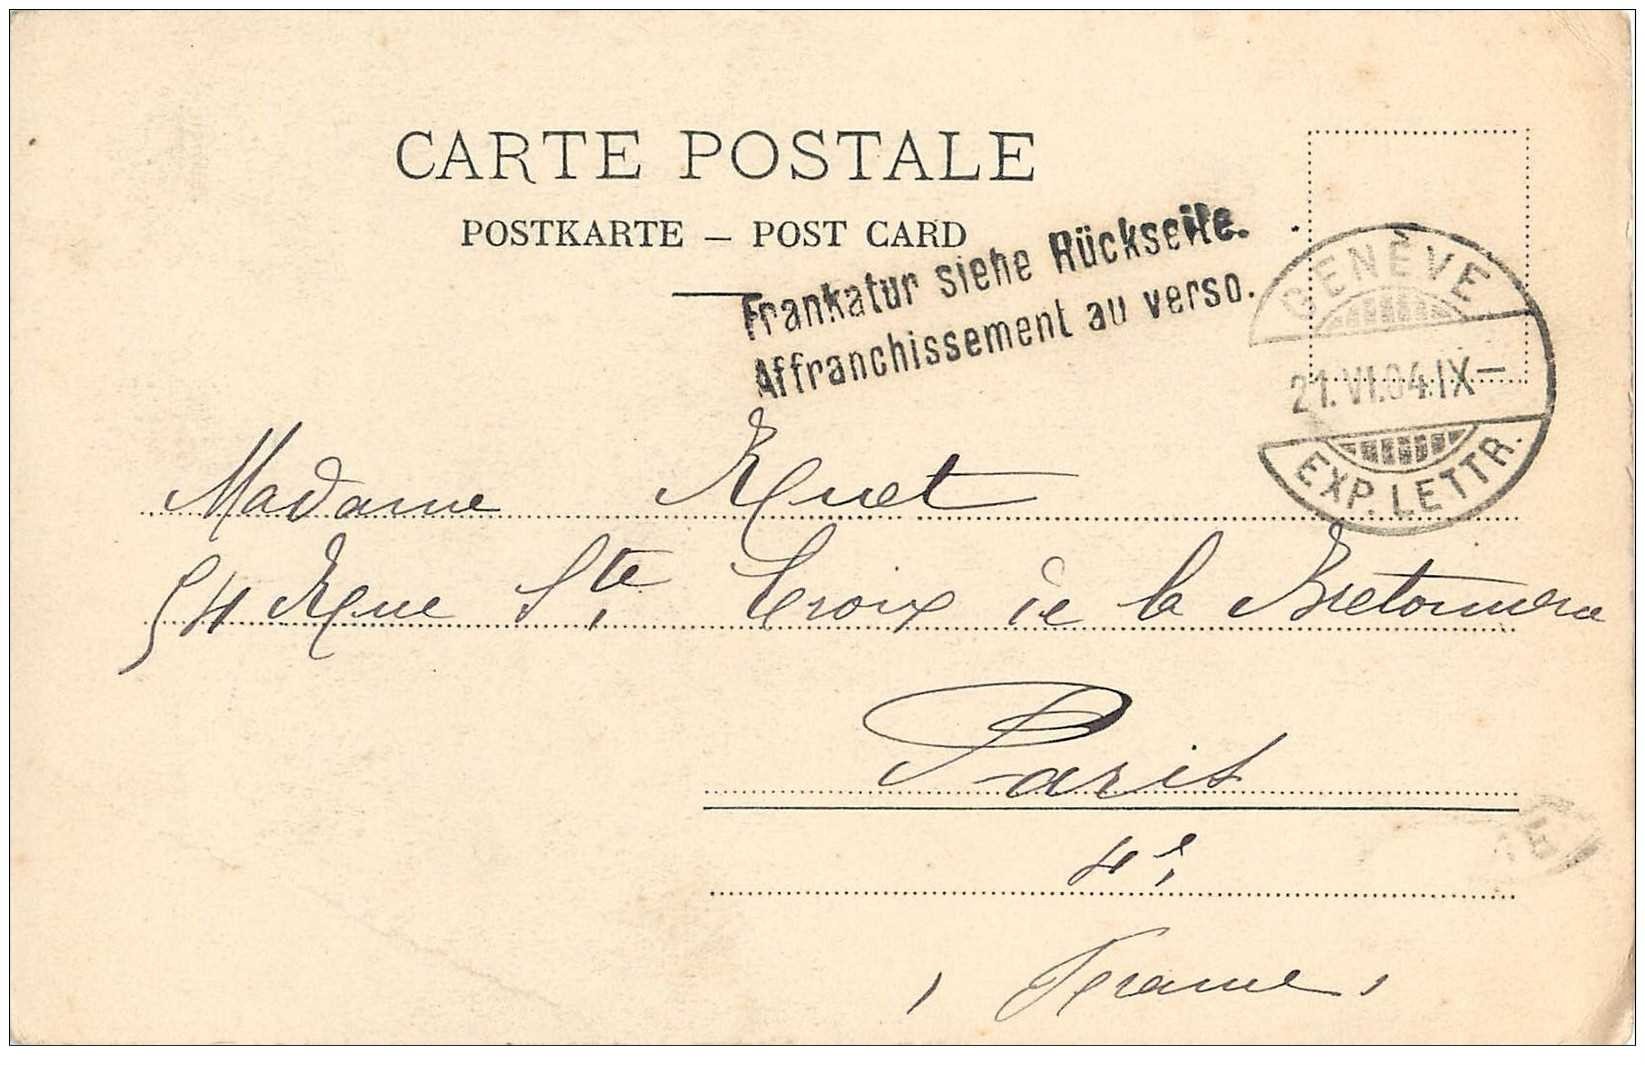 CARTE POSTALE
POSTKARTE – POST CARD
Frankatur siehe Rückseite.
Affranchissement au verso.
GENÈVE
21.VI.04.IX–
EXP. LETTR.
Madame Ruet
54 Rue Ste Croix de la Bretonnerie
Paris
4e
France